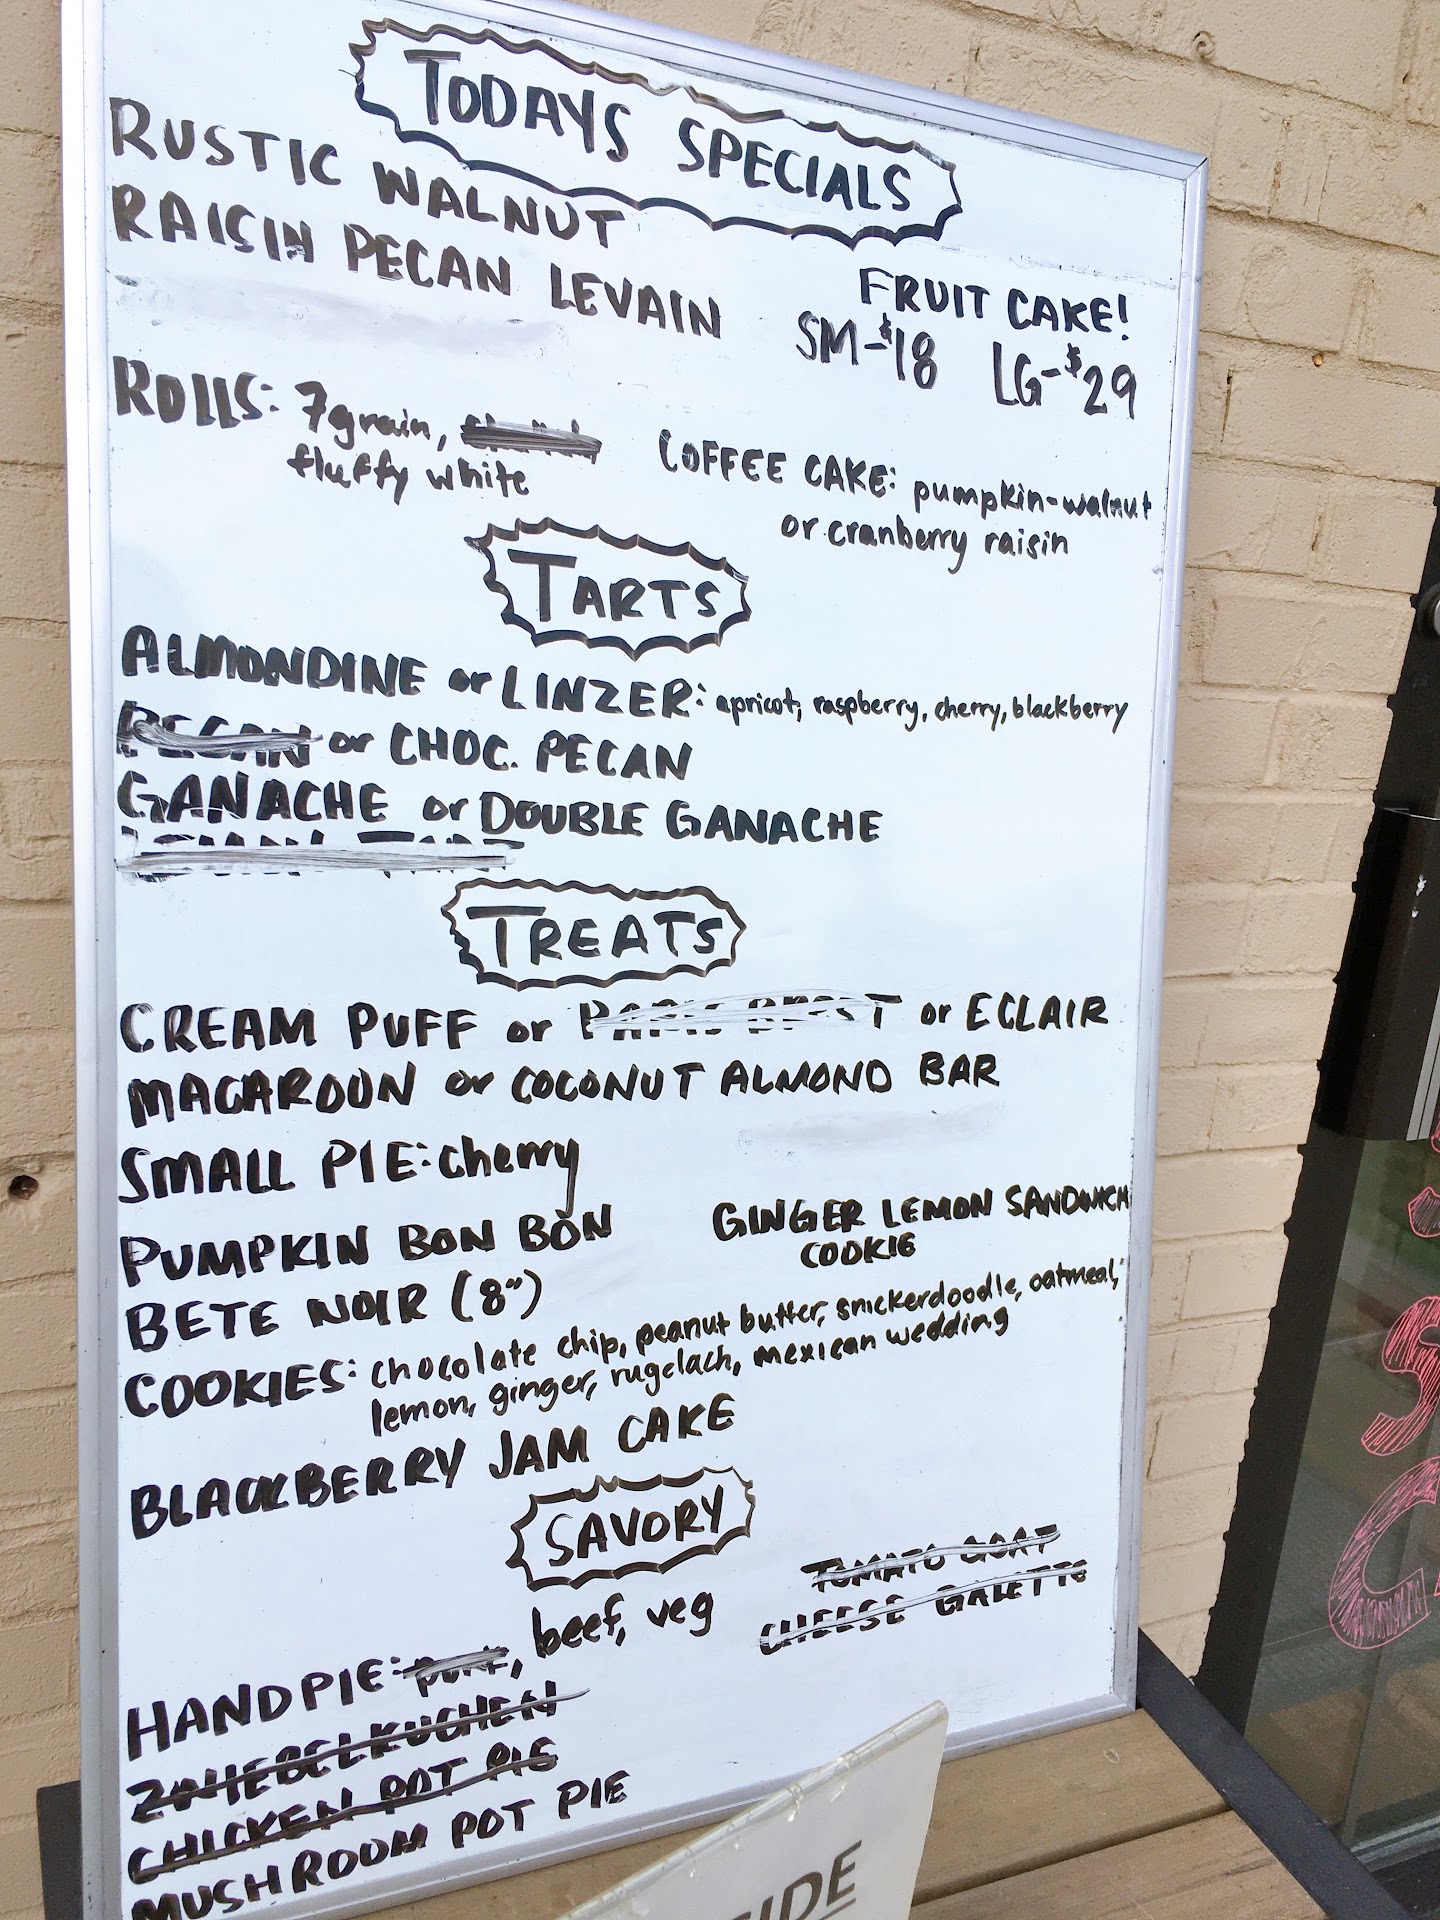 TODAYS SPECIALS
RUSTIC WALNUT
RAISIN PECAN LEVAIN
FRUIT CAKE!
SM-$18 LG-$29
ROLLS: 7grain,
fluffy white
COFFEE CAKE: pumpkin-walnut
or cranberry raisin
TARTS
ALMONDINE or LINZER: apricot, raspberry, cherry, blackberry
PECAN or CHOC. PECAN
GANACHE or DOUBLE GANACHE
LEMON TART
TREATS
CREAM PUFF or PARIS BREST or ECLAIR
MACAROON or COCONUT ALMOND BAR
SMALL PIE: cherry
PUMPKIN BON BON
GINGER LEMON SANDWICH
COOKIE
BETE NOIR (8")
COOKIES: chocolate chip, peanut butter, snickerdoodle, oatmeal,
lemon, ginger, rugelach, mexican wedding
BLACKBERRY JAM CAKE
SAVORY
TOMATO GOAT
CHEESE GALETTE
HANDPIE: pork, beef, veg
ZWIEBELKUCHEN
CHICKEN POT PIE
MUSHROOM POT PIE
IDE